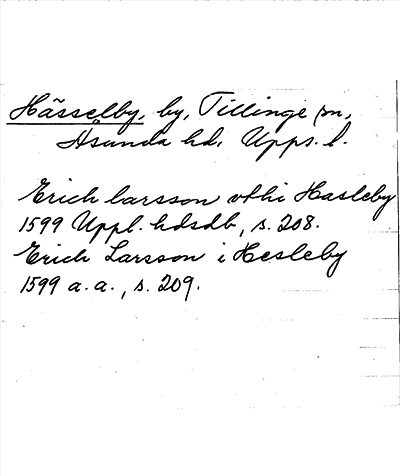 Hässelby, by, Tillinge sn,
Åsunda hd, Upps. l.
Erich larsson vthi Hasleby
1599 Uppl. hdsdb, s. 208.
Erich Larsson i Hesleby
1599 a. a., s. 209.